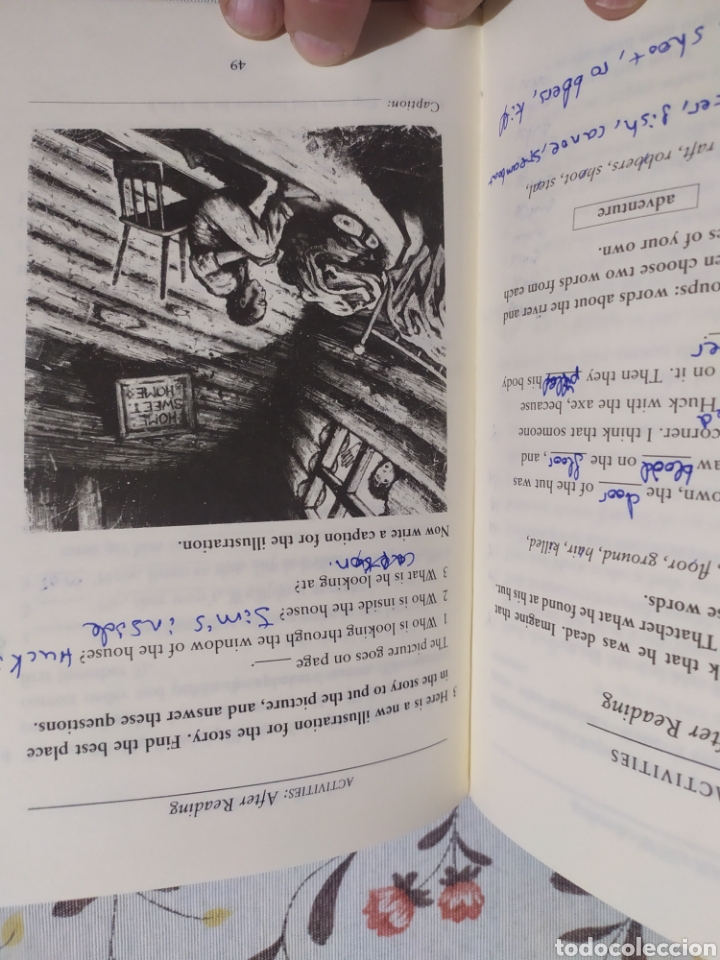 ACTIVITIES
fter Reading
k that he was dead. Imagine that
Thatcher what he found at his hut.
se words.
, floor, ground, hair, killed,
own, the door of the hut was
aw blood on the floor, and
corner. I think that someone
Huck with the axe, because
on it. Then they pulled his body
er
oups: words about the river and
en choose two words from each
es of your own.
adventure
raft, robbers, shoot, steal,
fish, canoe, steamboat
shoot, robbers, kill
ACTIVITIES: After Reading
3 Here is a new illustration for the story. Find the best place
in the story to put the picture, and answer these questions.
The picture goes on page ____.
1 Who is looking through the window of the house? Huck
2 Who is inside the house? Jim's inside
3 What is he looking at?
Now write a caption for the illustration.
HOME
SWEET
HOME
Caption:
49
todocoleccion